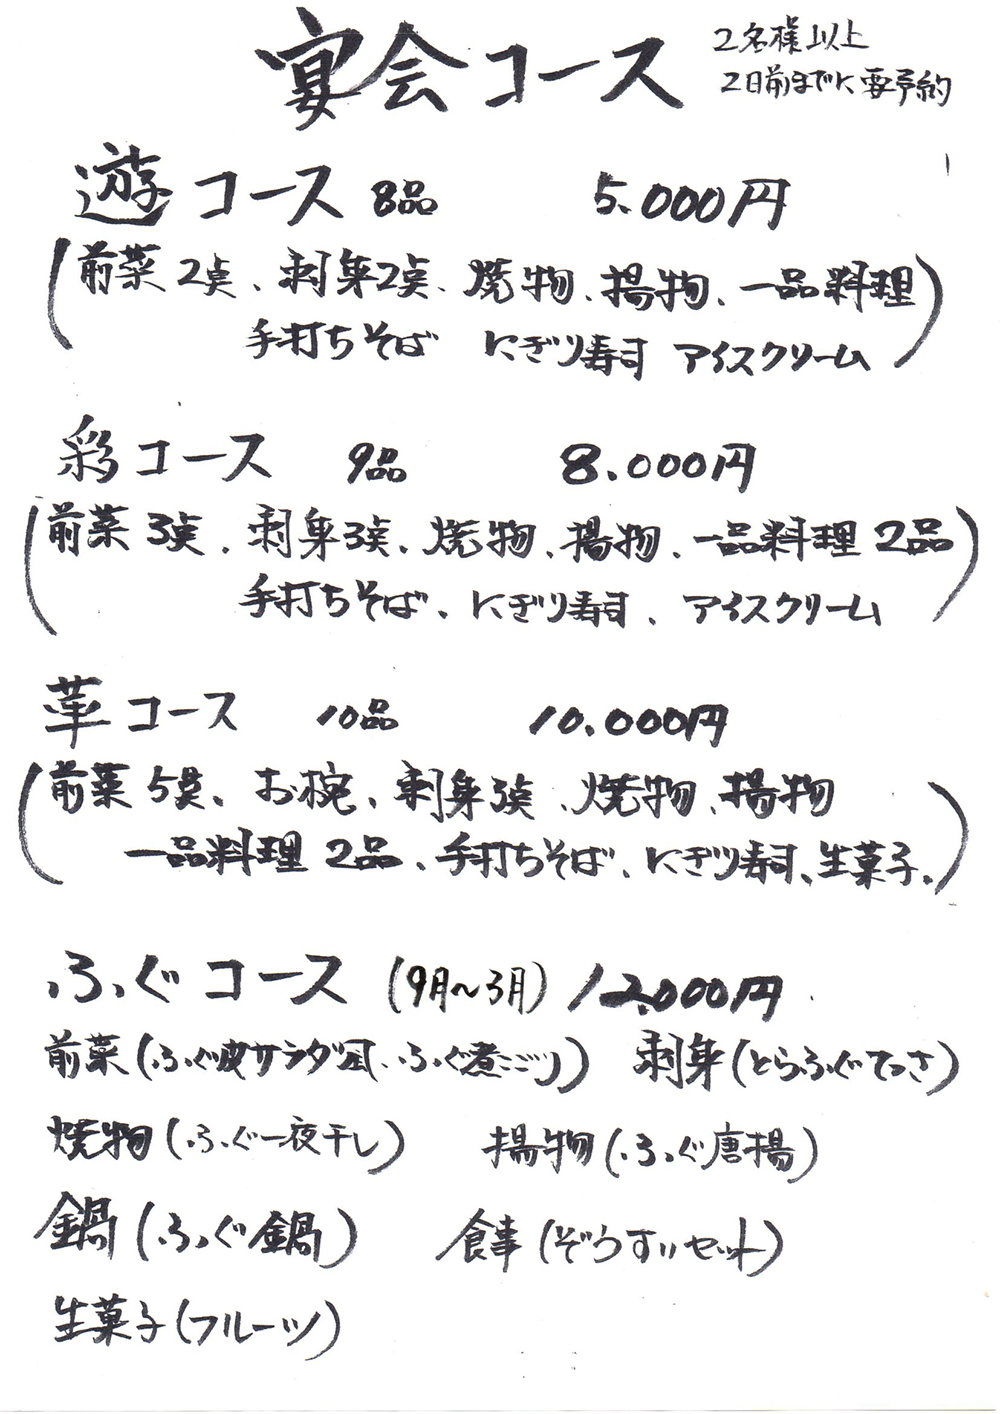 宴会コース
2名様以上
2日前までに要予約
遊コース 8品 5.000円
(前菜2点、刺身2点、焼物、揚物、一品料理
手打ちそば にぎり寿司 アイスクリーム)
彩コース 9品 8.000円
(前菜3点、刺身3点、焼物、揚物、一品料理2品
手打ちそば、にぎり寿司、アイスクリーム)
華コース 10品 10.000円
(前菜5点、お椀、刺身3点、焼物、揚物
一品料理2品、手打ちそば、にぎり寿司、生菓子。)
ふぐコース (9月~3月) 12.000円
前菜(ふぐ皮サラダ風、ふぐ煮こごり) 刺身(とらふぐてっさ)
焼物(ふぐ一夜干し) 揚物(ふぐ唐揚)
鍋(ふぐ鍋) 食事(ぞうすいセット)
生菓子(フルーツ)